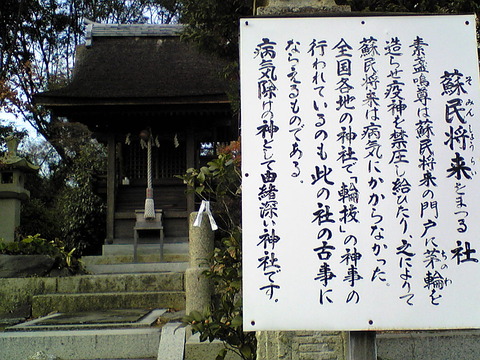 蘇民将来をまつる社
そみんしょうらい
素盞嗚尊は蘇民将来の門戸に茅輪を
ちのわ
造らせ疫神を禁圧し給ひたり、之によりて
蘇民将来は病気にかからなかった。
全国各地の神社で「輪抜」の神事の
行われているのも此の社の古事に
ならえるものである。
病気除けの神として由緒深い神社です。